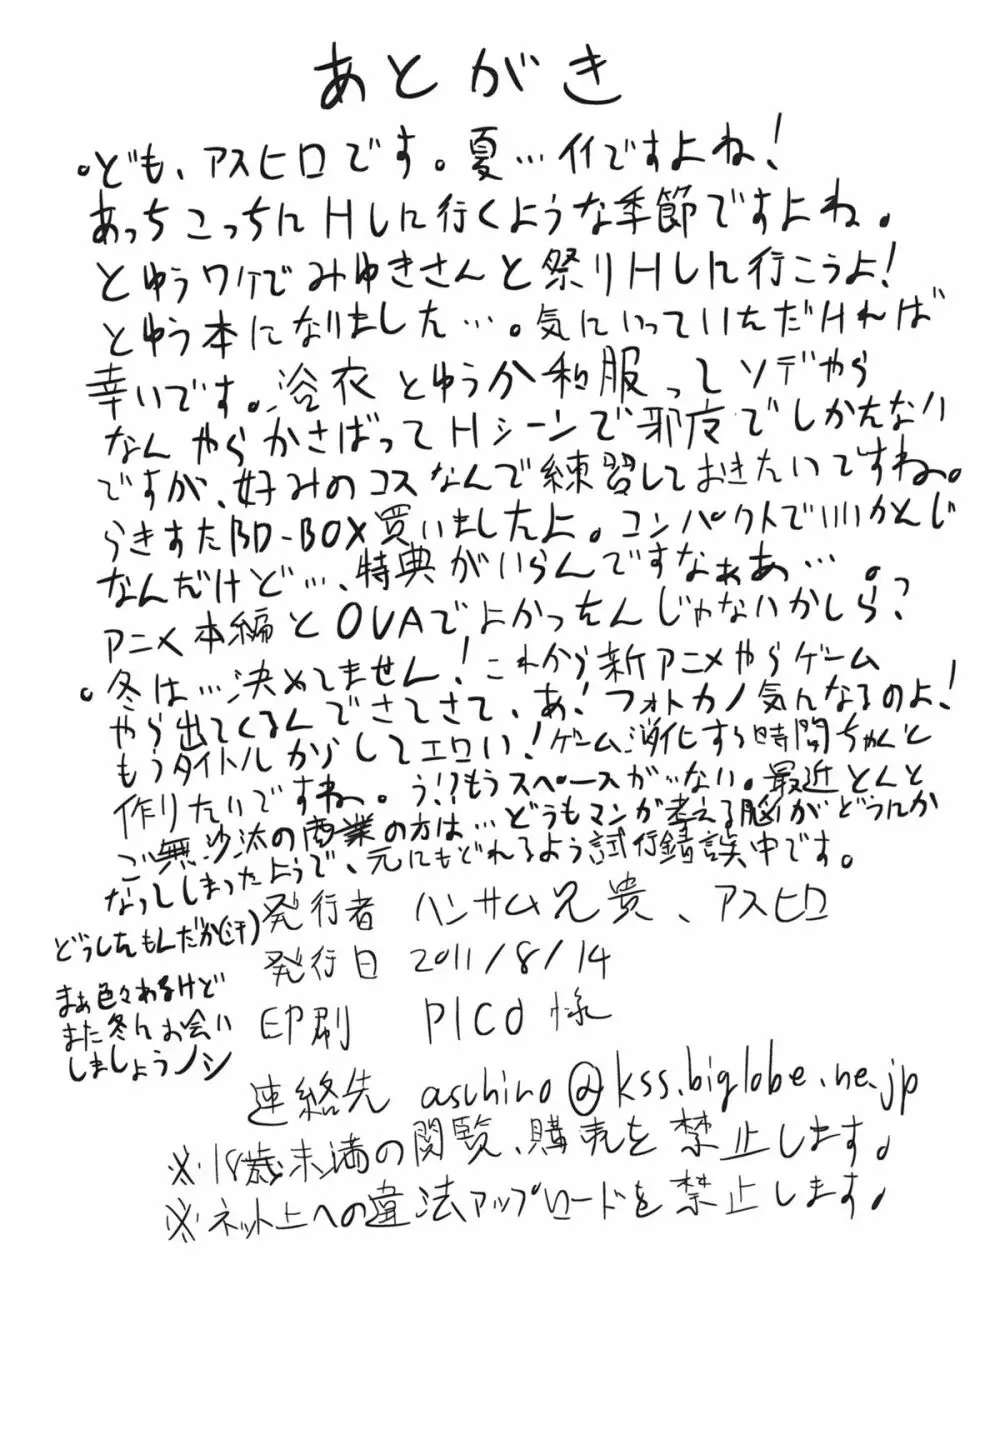 あとがき
。ども、アスヒロです。夏…イイですよね！
あっちこっちにHしに行くような季節ですよね。
とゆうワケでみゆきさんと祭りHしに行こうよ！
とゆう本になりました…。気にいっていただければ
幸いです。浴衣とゆうか和服ってソデやら
なんやらかさばってHシーンで邪魔でしかたない
ですが、好みのコスなんで練習しておきたいですね。
らきすたBD-BOX買いましたよ。コンパクトでいいかんじ
なんだけど…、特典がいらんですなぁあ…。
アニメ本編とOVAでよかったんじゃないかしら？
。冬は…決めてません！これから新アニメやらゲーム
やら出てくるんでさてさて、あ！フォトカノ気になるのよ！
もうタイトルからしてエロい！ゲーム消化する時間ちゃんと
作りたいですね。う!?もうスペースが…ない。最近とんと
ご無沙汰の商業の方は…どうもマンガ考える脳がどうにか
なってしまったようで、元にもどれるよう試行錯誤中です。
どうしたもんだか(汗)
まぁ色々あるけど
また冬にお会い
しましょうノシ
発行者 ハンサム兄貴、アスヒロ
発行日 2011/8/14
印刷 PICO様
連絡先 aschiro@kss.biglobe.ne.jp
※18歳未満の閲覧、購売を禁止します。
※ネット上への違法アップロードを禁止します。